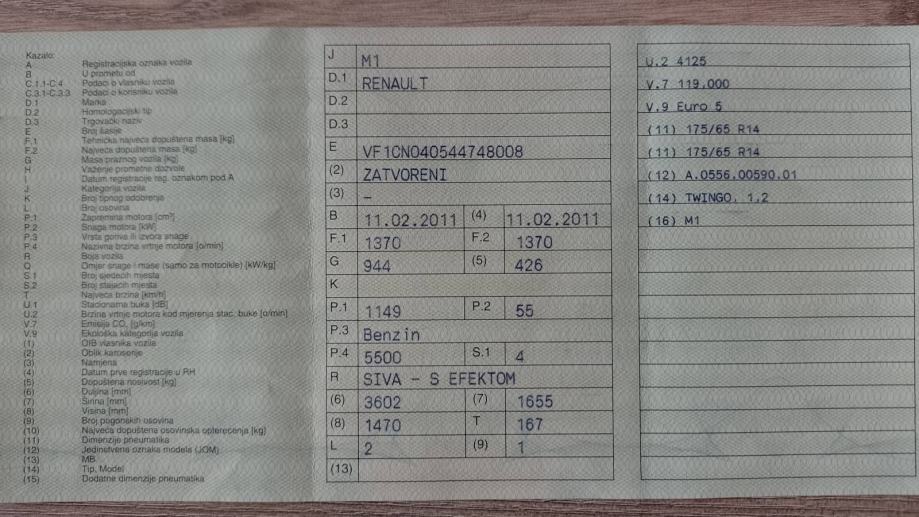 Kazalo:
A Registracijska oznaka vozila
B U prometu od
C.1.1-C.4 Podaci o vlasniku vozila
C.3.1-C.3.3 Podaci o korisniku vozila
D.1 Marka
D.2 Homologacijski tip
D.3 Trgovački naziv
E Broj šasije
F.1 Tehnička najveća dopuštena masa [kg]
F.2 Najveća dopuštena masa [kg]
G Masa praznog vozila [kg]
H Važenje prometne dozvole
I Datum registracije reg. oznakom pod A
J Kategorija vozila
K Broj tipnog odobrenja
L Broj osovina
P.1 Zapremina motora [cm³]
P.2 Snaga motora [kW]
P.3 Vrsta goriva ili izvora snage
P.4 Nazivna brzina vrtnje motora [o/min]
R Boja vozila
Q Omjer snage i mase (samo za motocikle) [kW/kg]
S.1 Broj sjedećih mjesta
S.2 Broj stajaćih mjesta
T Najveća brzina [km/h]
U.1 Stacionarna buka [dB]
U.2 Brzina vrtnje motora kod mjerenja stac. buke [o/min]
V.7 Emisija CO₂ [g/km]
V.9 Ekološka kategorija vozila
(1) OIB vlasnika vozila
(2) Oblik karoserije
(3) Namjena
(4) Datum prve registracije u RH
(5) Dopuštena nosivost [kg]
(6) Duljina [mm]
(7) Širina [mm]
(8) Visina [mm]
(9) Broj pogonskih osovina
(10) Najveće dopuštena osovinska opterećenja [kg]
(11) Dimenzije pneumatika
(12) Jedinstvena oznaka modela (JOM)
(13) MB
(14) Tip, Model
(15) Dodatne dimenzije pneumatika
J M1
D.1 RENAULT
D.2
D.3
E VF1CN040544748008
(2) ZATVORENI
(3) –
B 11.02.2011 (4) 11.02.2011
F.1 1370 F.2 1370
G 944 (5) 426
K
P.1 1149 P.2 55
P.3 Benzin
P.4 5500 S.1 4
R SIVA - S EFEKTOM
(6) 3602 (7) 1655
(8) 1470 T 167
L 2 (9) 1
(13)
U.2 4125
V.7 119,000
V.9 Euro 5
(11) 175/65 R14
(11) 175/65 R14
(12) A.0556.00590.01
(14) TWINGO, 1,2
(16) M1